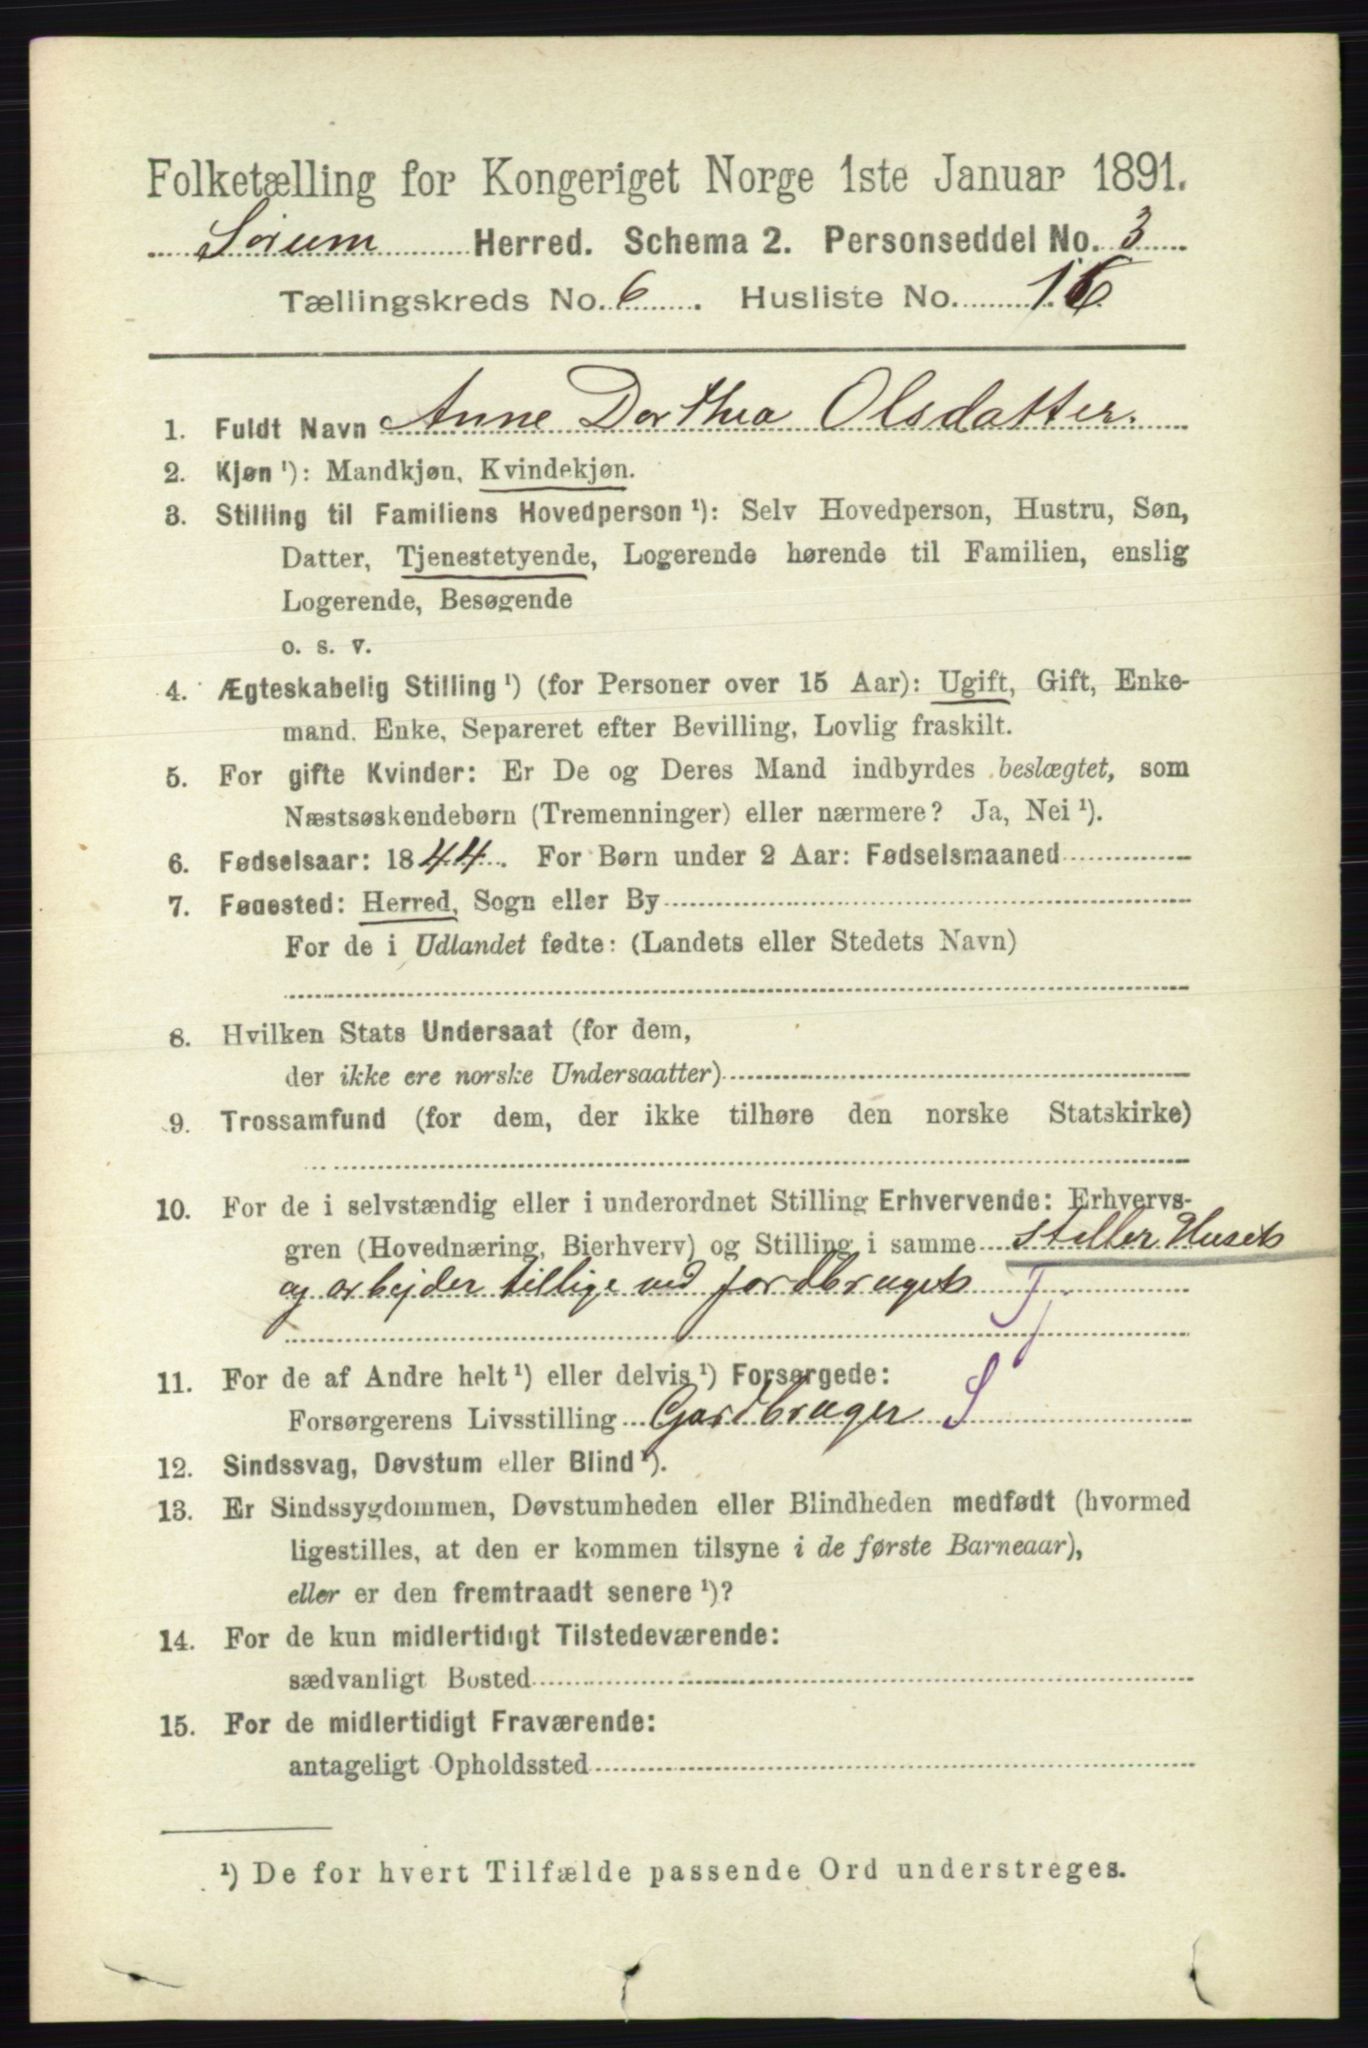 Folketælling for Kongeriget Norge 1ste Januar 1891.
Sørum Herred. Schema 2. Personseddel No. 3
Tællingskreds No. 6. Husliste No. 16
1. Fuldt Navn Anne Dorthea Olsdatter.
2. Kjøn ¹): Mandkjøn, Kvindekjøn.
3. Stilling til Familiens Hovedperson ¹): Selv Hovedperson, Hustru, Søn,
Datter, Tjenestetyende, Logerende hørende til Familien, enslig
Logerende, Besøgende
o. s. v.
4. Ægteskabelig Stilling ¹) (for Personer over 15 Aar): Ugift, Gift, Enke-
mand. Enke, Separeret efter Bevilling, Lovlig fraskilt.
5. For gifte Kvinder: Er De og Deres Mand indbyrdes beslægtet, som
Næstsøskendebørn (Tremenninger) eller nærmere? Ja, Nei ¹).
6. Fødselsaar: 1844. For Børn under 2 Aar: Fødselsmaaned
7. Fødested: Herred, Sogn eller By
For de i Udlandet fødte: (Landets eller Stedets Navn)
8. Hvilken Stats Undersaat (for dem,
der ikke ere norske Undersaatter)
9. Trossamfund (for dem, der ikke tilhøre den norske Statskirke)
10. For de i selvstændig eller i underordnet Stilling Erhvervende: Erhvervs-
gren (Hovednæring, Bierhverv) og Stilling i samme steller Huset
og arbejder tillige ved jordbruget T
11. For de af Andre helt ¹) eller delvis ¹) Forsørgede:
Forsørgerens Livsstilling Gardbruger S
12. Sindssvag, Døvstum eller Blind ¹).
13. Er Sindssygdommen, Døvstumheden eller Blindheden medfødt (hvormed
ligestilles, at den er kommen tilsyne i de første Barneaar),
eller er den fremtraadt senere ¹)?
14. For de kun midlertidigt Tilstedeværende:
sædvanligt Bosted
15. For de midlertidigt Fraværende:
antageligt Opholdssted
¹) De for hvert Tilfælde passende Ord understreges.